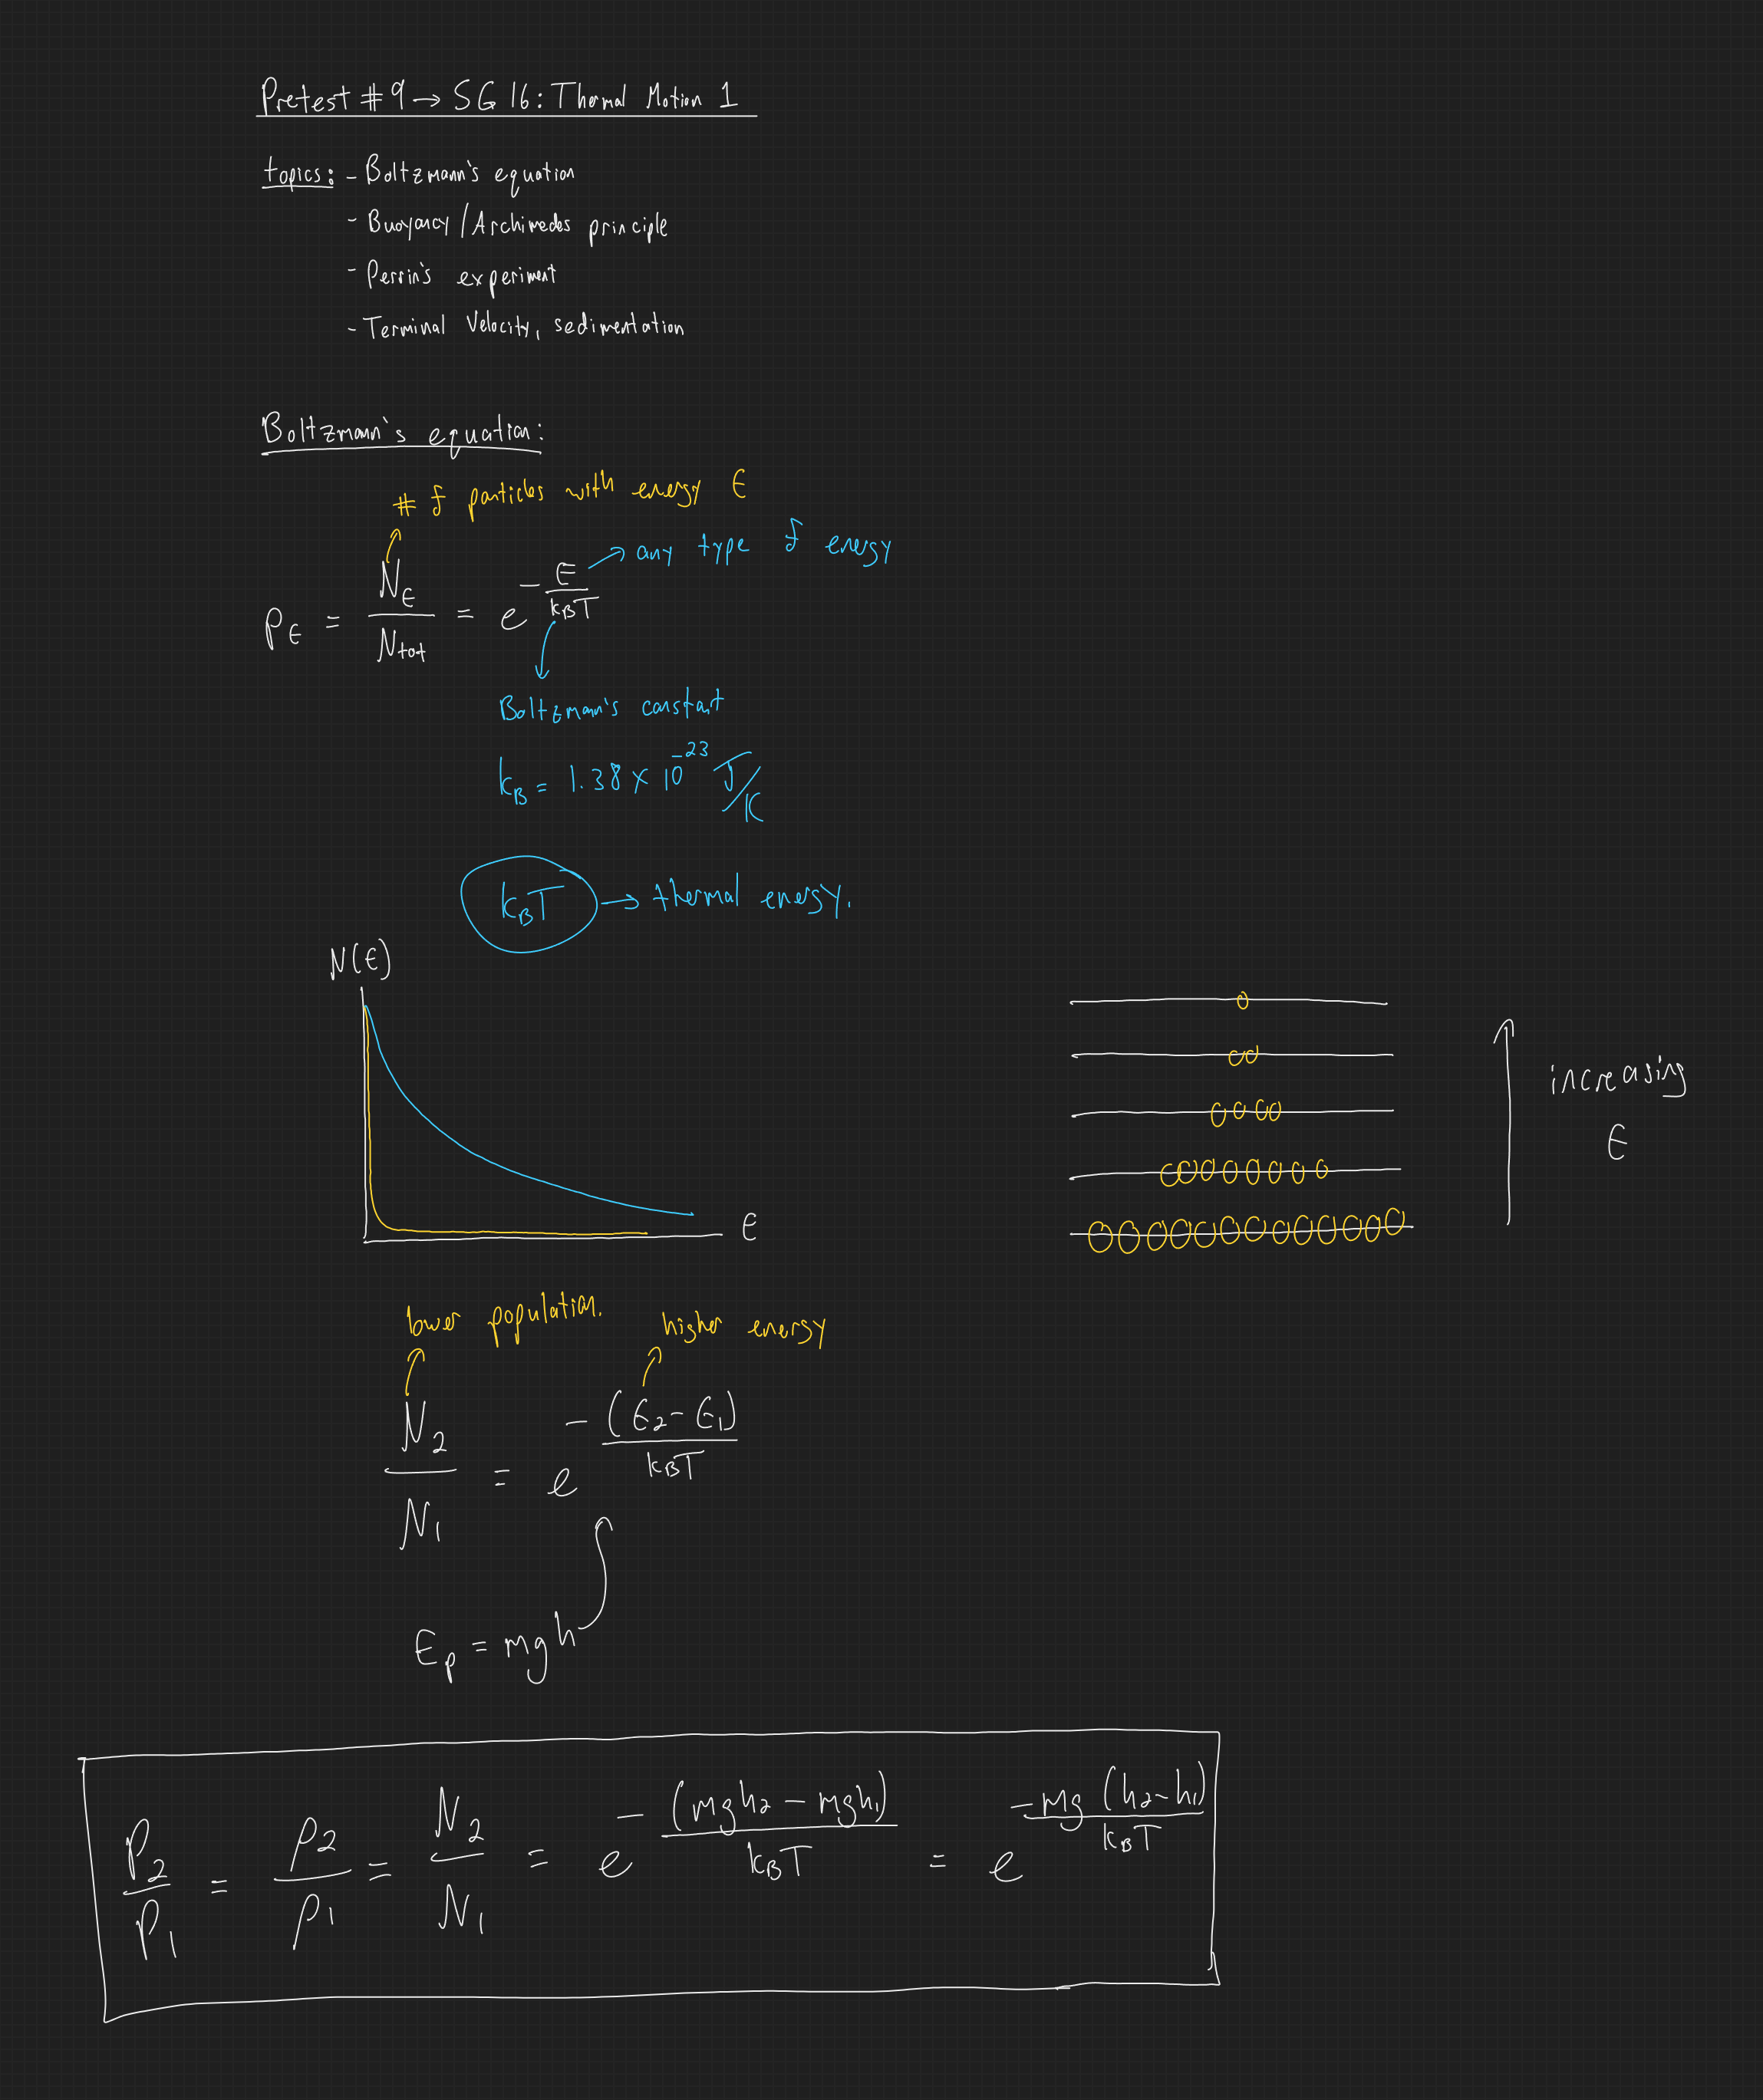 Pretest #9 → SG 16: Thermal Motion 1
topics: - Boltzmann's equation
- Buoyancy / Archimedes principle
- Perrin's experiment
- Terminal Velocity, sedimentation
Boltzmann's equation:
# of particles with energy E
→ any type of energy
P_E = N_E / N_tot = e^(-E/(k_BT))
Boltzmann's constant
k_B = 1.38 × 10^-23 J/K
k_BT → thermal energy.
N(E)
E
increasing
E
lower population.
higher energy
N_2 / N_1 = e^(-(E_2 - E_1)/(k_BT))
E_p = mgh
P_2/P_1 = ρ_2/ρ_1 = N_2/N_1 = e^(-(mgh_2 - mgh_1)/(k_BT)) = e^(-mg(h_2 - h_1)/(k_BT))